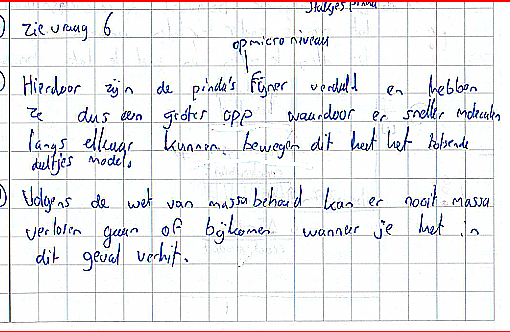 Zie vraag 6
op micro niveau
Hierdoor zijn de pinda's fijner verdeeld en hebben
ze dus een groter opp waardoor er sneller moleculen
langs elkaar kunnen bewegen dit heet het botsende
deeltjes model.
Volgens de wet van massabehoud kan er nooit massa
verloren gaan of bijkomen wanneer je het in
dit geval verhit.